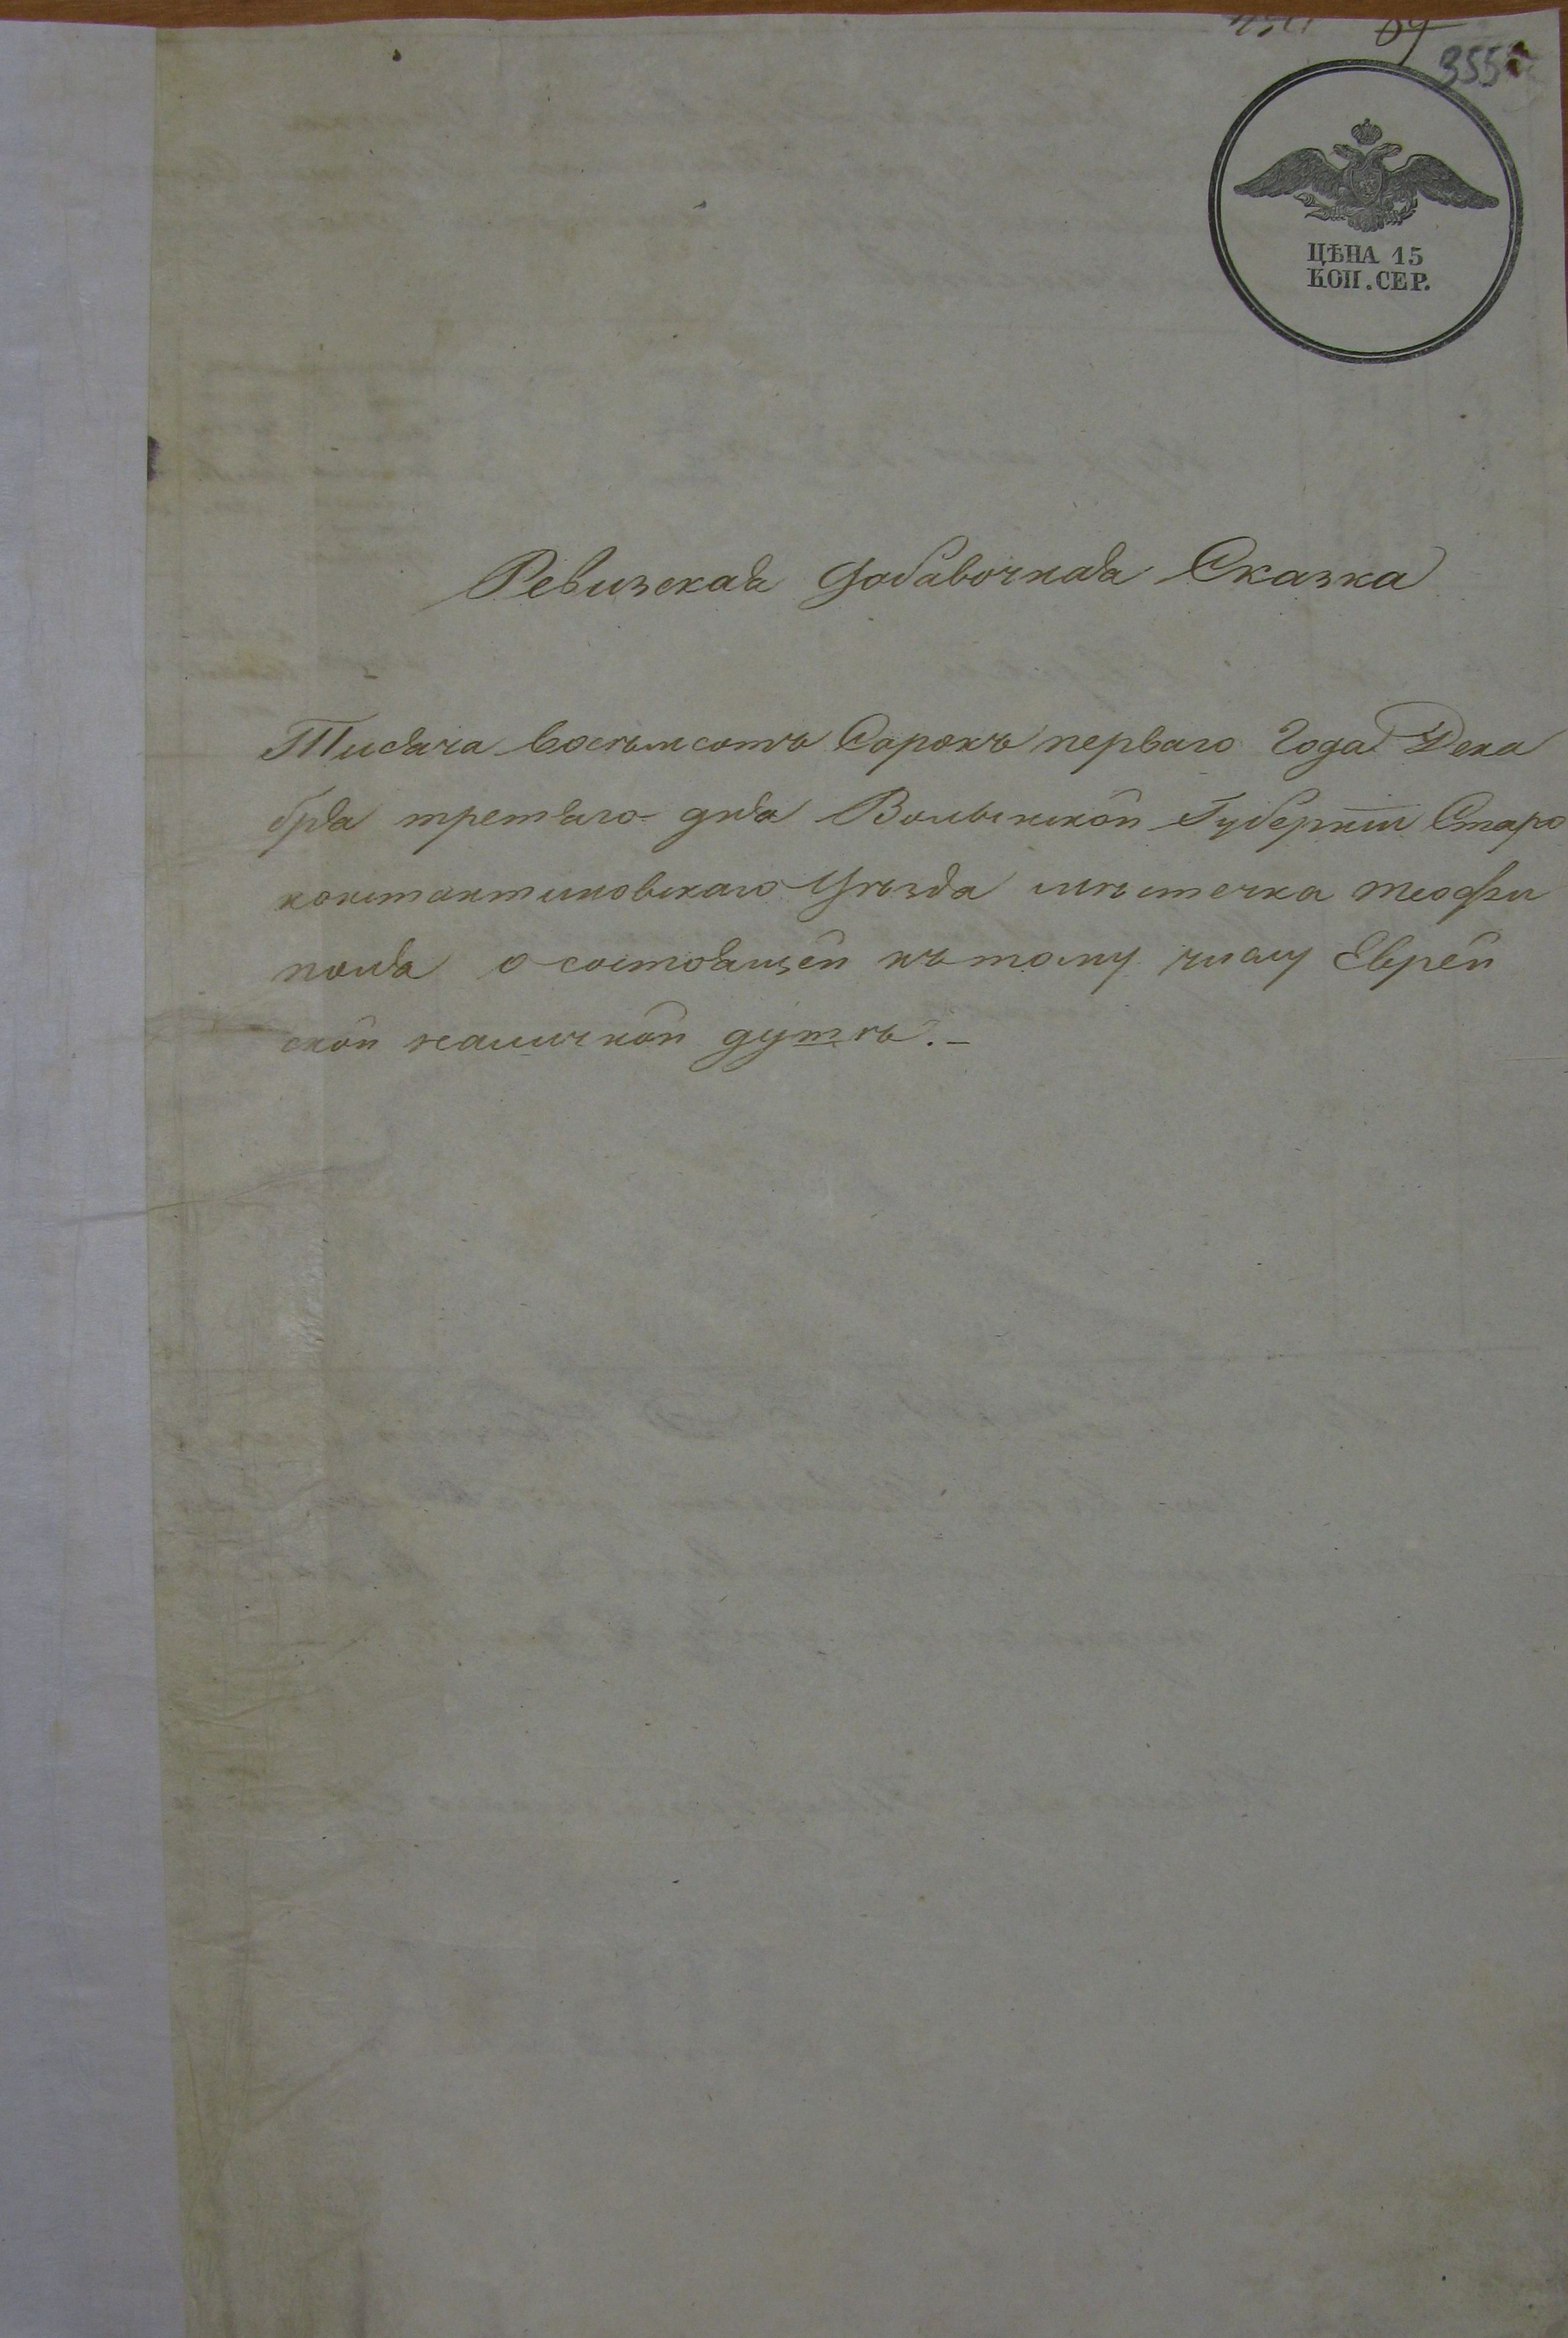 355
ЦѢНА 15
КОП. СЕР.
Ревизская добавочная Сказка
Тисяча восъмсотъ Сорокъ перваго Года Дека
бря третяго дня Волынской Губернии Старо
константиновскаго Уѣзда мѣстечка теофи
поля о состоящей къ тому числу Еврей
ской наличной душѣ.-